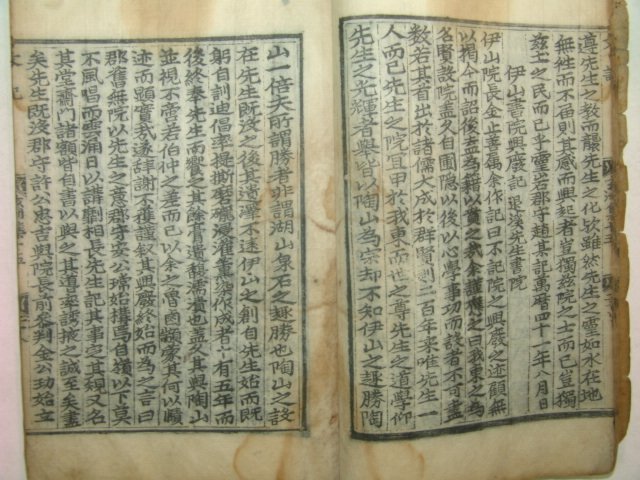 遵先生之教而襲先生之化欤雖然先生之靈如水在地
無徃而不届則其感而興起者豈獨玆院之士而已豈獨
玆士之民而已乎靈岩郡守趙某記萬曆四十一年八月日
伊山書院興廢記 退溪先生書院
伊山院長金士善爲余作記曰不記院之興廢之迹顧無
以揭今而詔後去爲籍以賁之我余謹應之曰我東之爲
名賢設院盖久自圃隱以後以心學事功而設者不可盡
數若其首出於諸儒大成於群賢則二百年來唯先生一
人而已先生之院宜甲於我東而世之尊先生之道學仰
先生之光輝者擧皆以陶山爲宗却不知伊山之趣勝陶
山一倍夫所謂勝者非謂湖山泉石之趣勝也陶山之設
在先生旣沒之後其遺澤不逮伊山之創自先生始而旣
躬自訓迪倡率提撕磨礲浸灌薰染作成者十有五年而
後終奉先生而饗之其餘膏遺馥濡漬也盖其與陶山
並視不啻若伯仲之差而已以余之魯鹵懶蒙其何以順
迹而顯實我遂辭謝不獲讓叙其興廢終始而爲之言曰
郡舊無院以先生之意郡守安公瑺始搆焉自嶺以下莫
不風唱而雲涌日以講劘相長先生記其事定其頖又名
其堂齋門諸額皆自書以與之其道率誘掖之誠至矣盡
矣先生旣沒郡守許公忠吉與院長前參判金公功始立